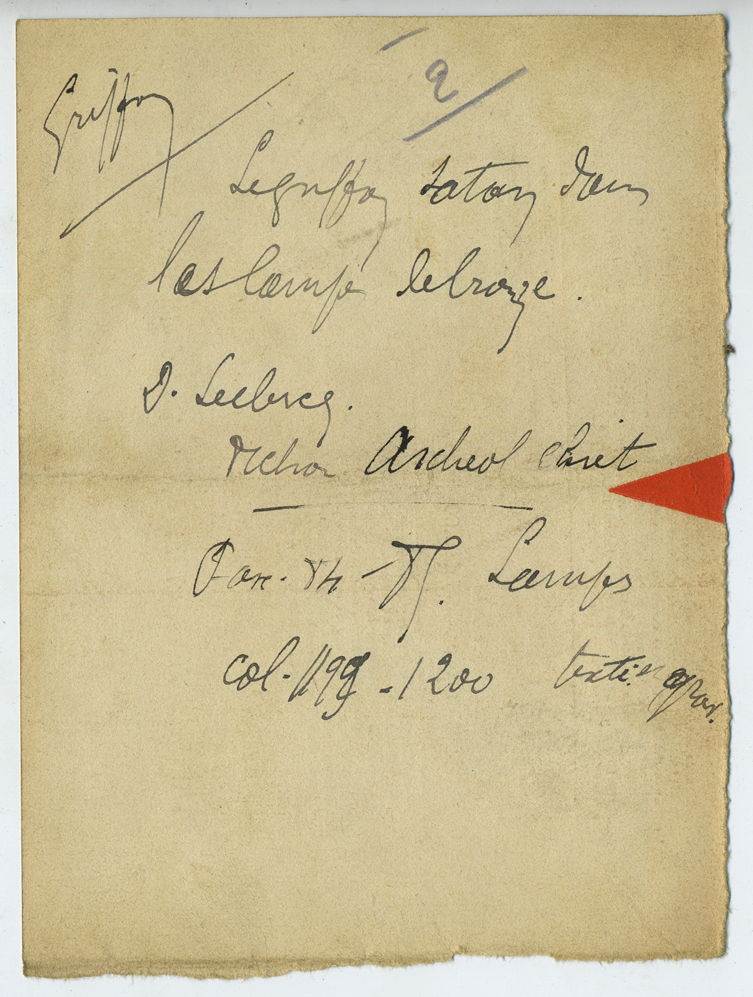 Griffon
9
Le griffon satan dans
les lampe de bronze.
D. Leclercq.
Diction Archeol Chret
Lamps
col. 1199 - 1200 texte grav.